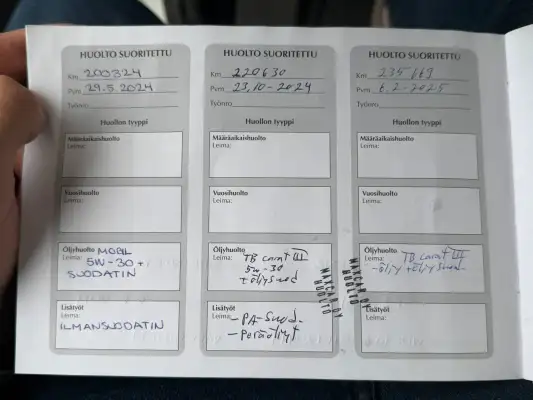 HUOLTO SUORITETTU
Km 200324
Pvm 29.5.2024
Työnro
Huollon tyyppi
Määräaikaishuolto
Leima:
Vuosihuolto
Leima:
Öljyhuolto MOBIL
Leima: 5W-30+
SUODATIN
Lisätyöt
Leima:
ILMANSUODATIN
HUOLTO SUORITETTU
Km 220630
Pvm 23,10-2024
Työnro
Huollon tyyppi
Määräaikaishuolto
Leima:
Vuosihuolto
Leima:
Öljyhuolto
Leima: TB carat III
5w-30
+öljysuod
MAXCAR OY
HUOLTO
Lisätyöt
Leima: -PA-Suod-
-Peräöljyt
HUOLTO SUORITETTU
Km
Pvm 6.2-2025
Työnro
Huollon tyyppi
Määräaikaishuolto
Leima:
Vuosihuolto
Leima:
Öljyhuolto TB carat III
Leima: -öljy +öljysuod-
MAXCAR OY
HUOLTO
Lisätyöt
Leima: